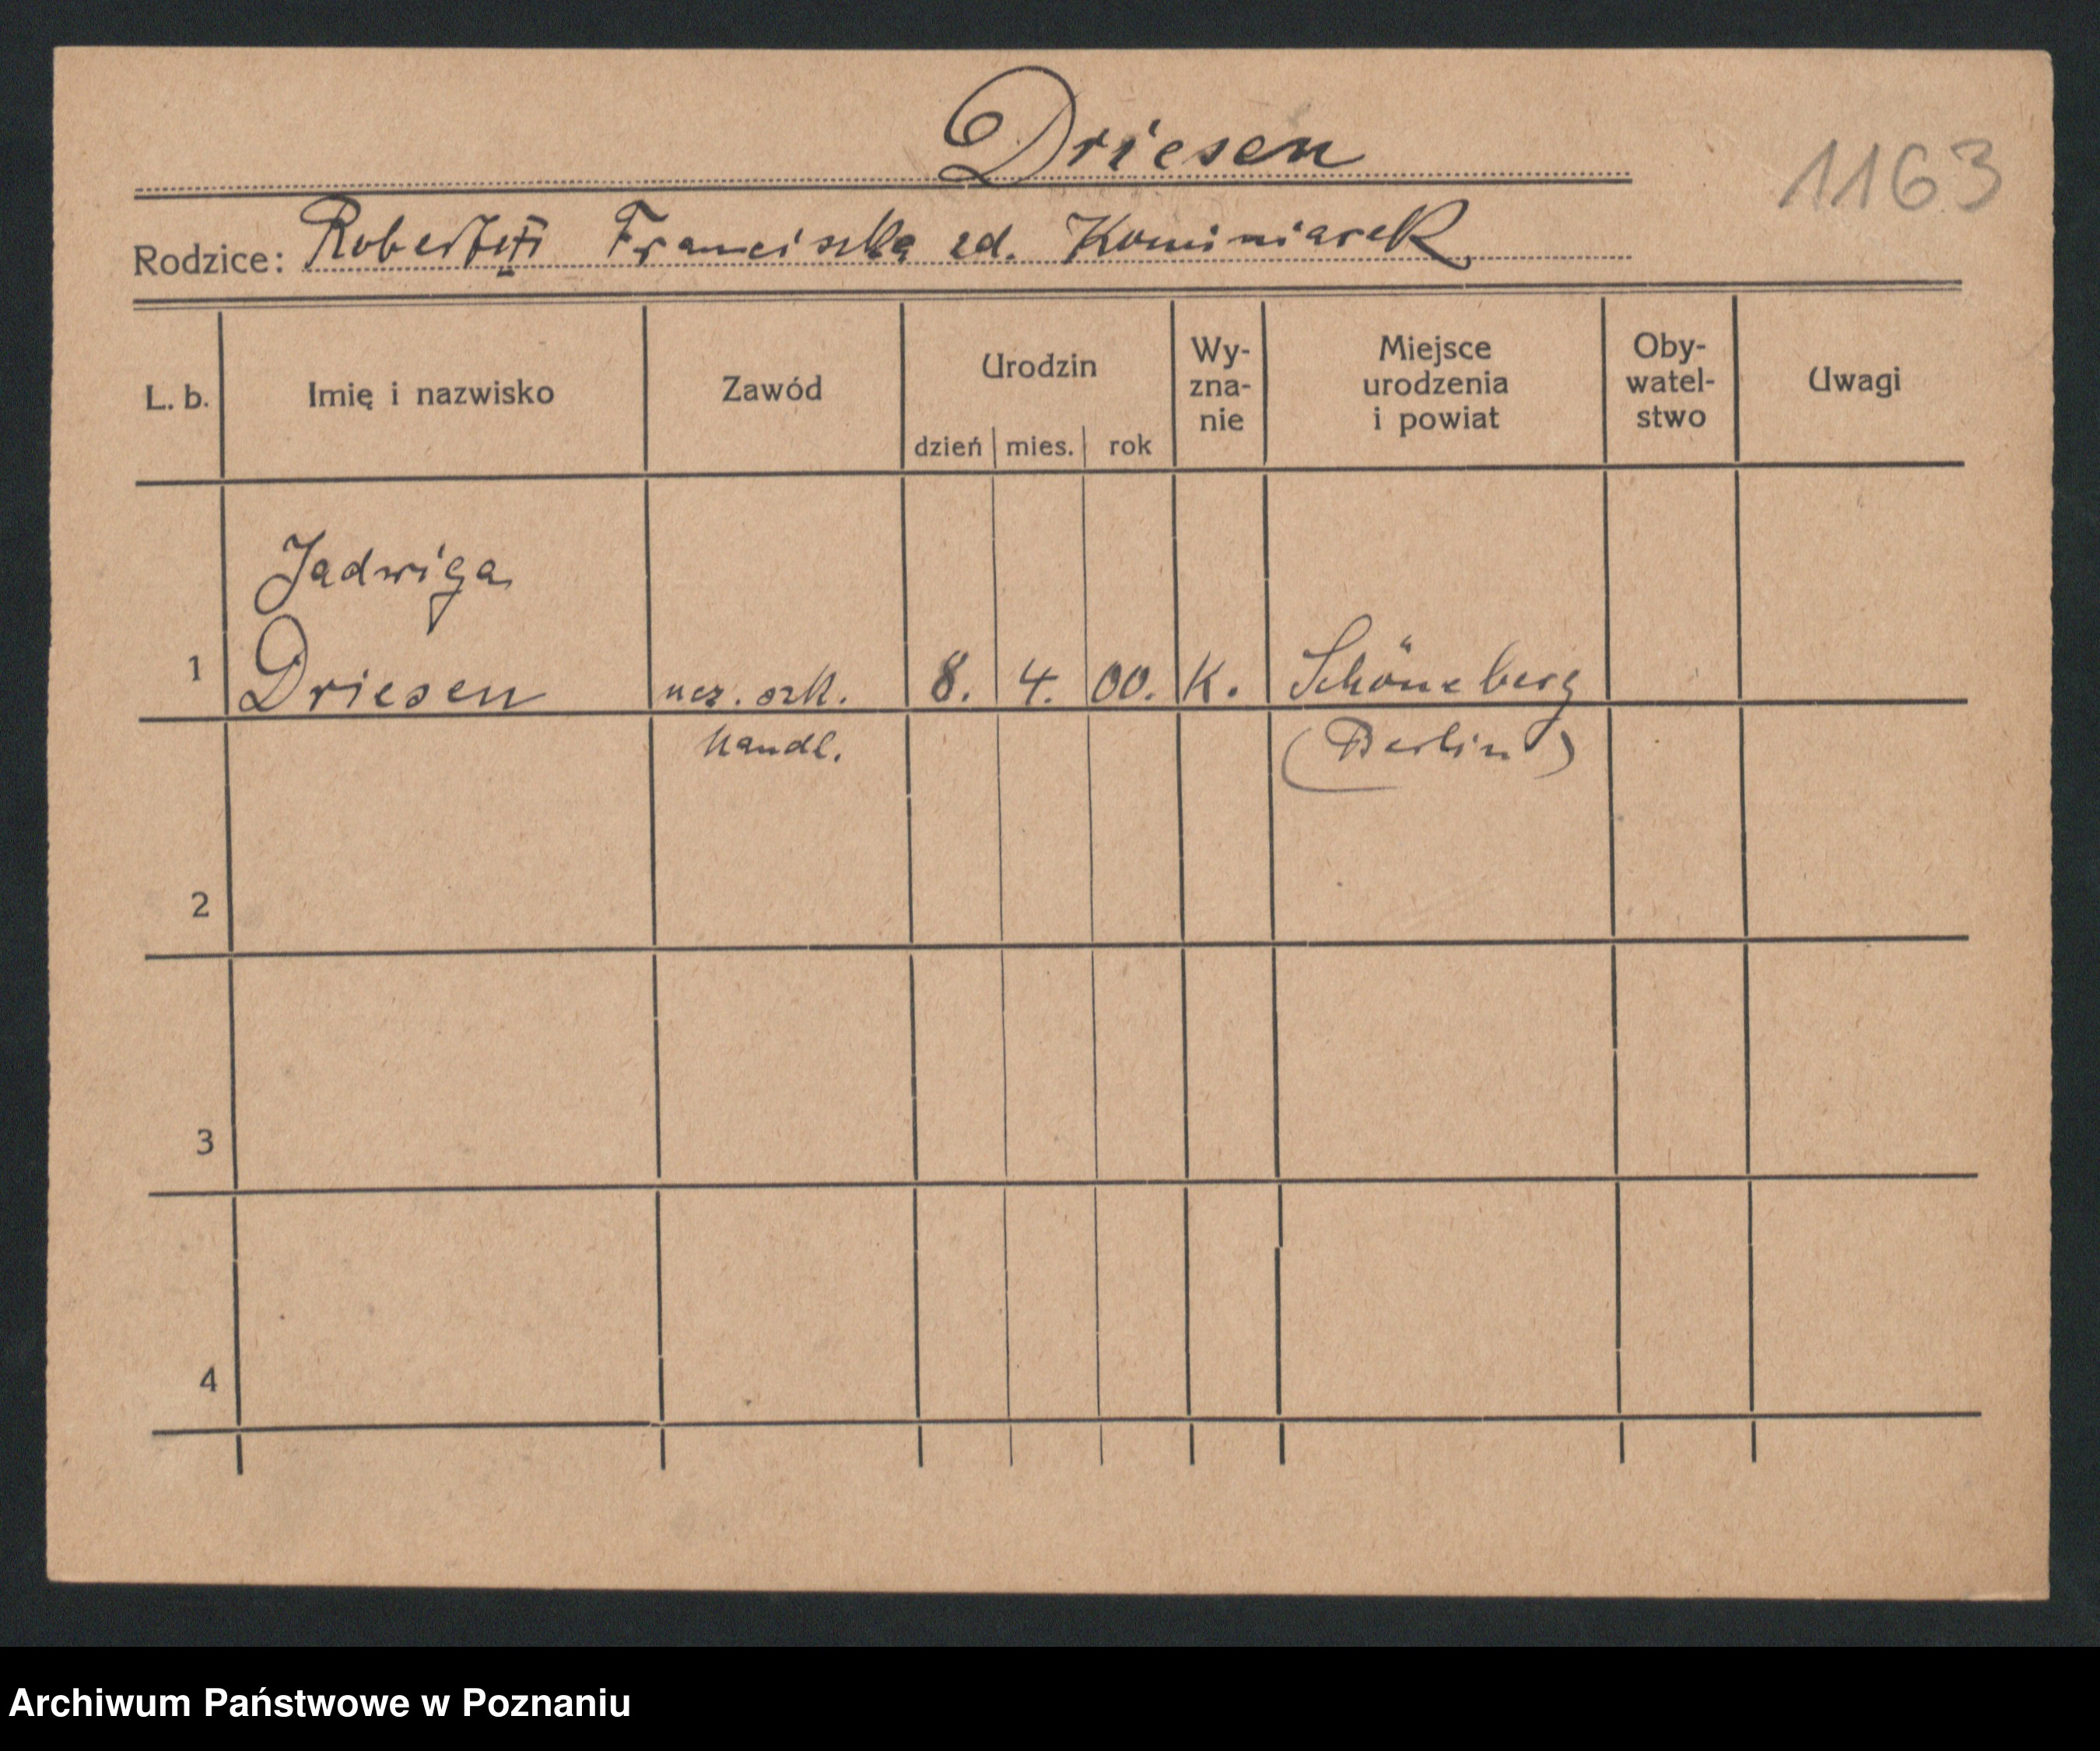 Driesen
1163
Rodzice: Robert i Franciszka zd. Kominiarek
L. b. Imię i nazwisko Zawód Urodzin dzień mies. rok Wy-zna-nie Miejsce urodzenia i powiat Oby-watel-stwo Uwagi
Jadwiga
1 Driesen ucz. szk. 8. 4. 00. K. Schöneberg
handl. (Berlin)
2
3
4
Archiwum Państwowe w Poznaniu